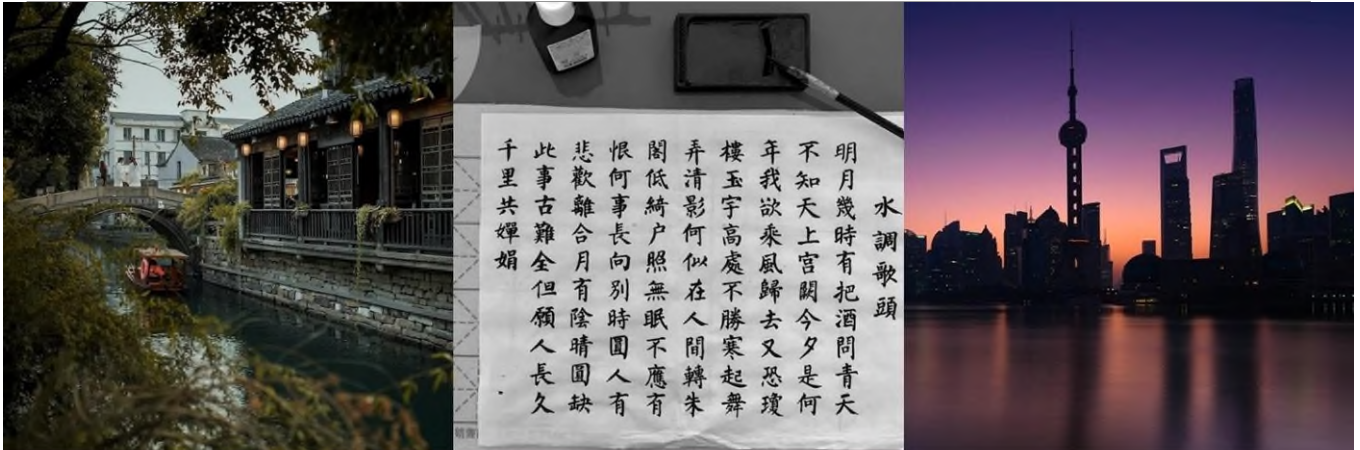 水調歌頭
明月幾時有把酒問青天
不知天上宮闕今夕是何
年我欲乘風歸去又恐瓊
樓玉宇高處不勝寒起舞
弄清影何似在人間轉朱
閣低綺户照無眠不應有
恨何事長向別時圓人有
悲歡離合月有陰晴圓缺
此事古難全但願人長久
千里共嬋娟